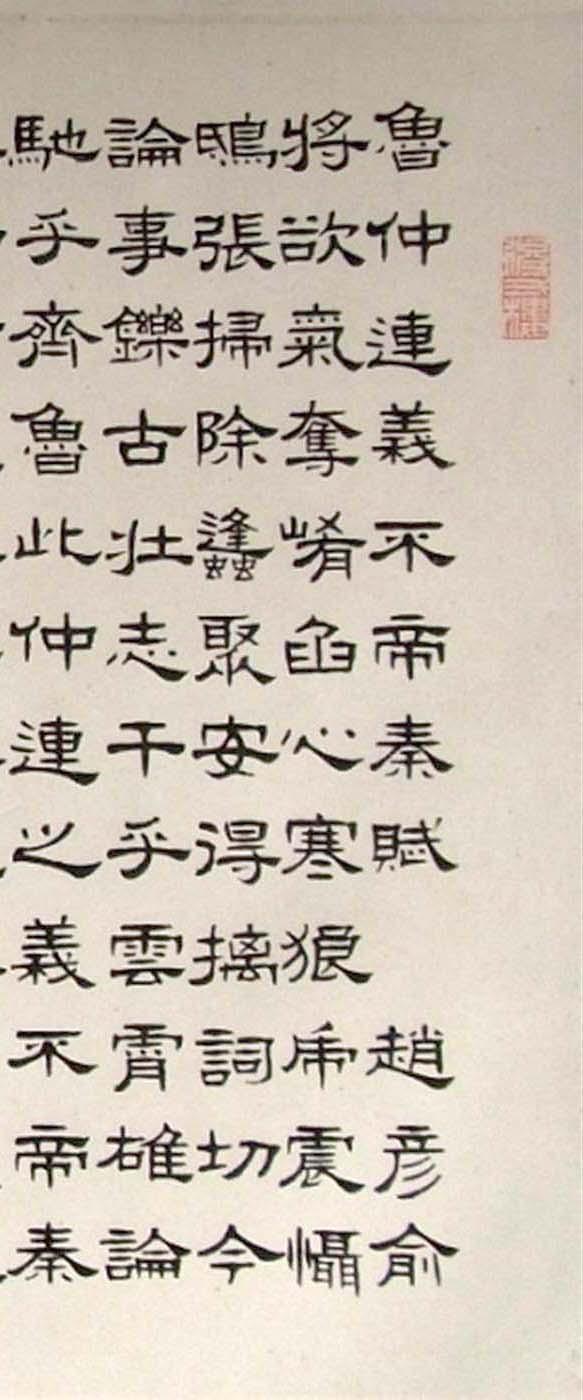 魯仲連義不帝秦賦 趙彥俞
將欲氣奪崤函心寒狼虎震懾
鴟張掃除蠭聚安得摛詞切今
論事鑠古壯志干乎雲霄雄論
馳乎齊魯此仲連之義不帝秦